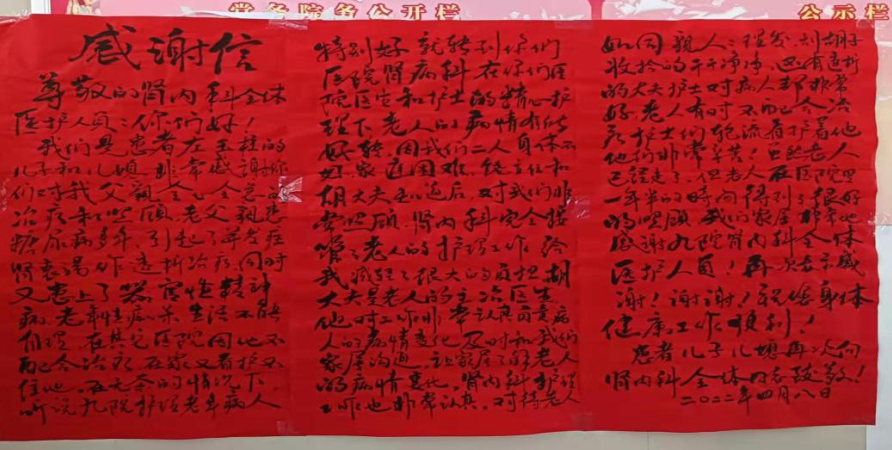 党务院务公开栏
公示栏
感谢信
尊敬的肾内科全体
医护人员：你们好！
我们是患者左玉柱的
儿子和儿媳，非常感谢你
们对我父亲全全意的
治疗和照顾，老父亲患
糖尿病多年，引起了并发症
肾衰竭作透析治疗，同时
又患上了器官性精神
病，老年性痴呆生活不能
自理，在其它医院因他不
配合治疗，在家又看护不
住他，在无奈的情况下，
听说九院护理老年病人
特别好，就转到你们
医院肾病科，在你们医
院医生和护士的精心护
理下老人的病情有所
好转，因我们二人身体不
好，家庭困难，主任和
胡大夫知道后，对我们非
常照顾，肾内科完全接
管了老人的护理工作，给
我减轻了很大的负担，胡
大夫是老人的主治医生，
他对工作非常认真负责病
人的病情变化及时和我们
家属沟通，让家属了解老人
的病情变化，肾内科护理
工作也非常认真，对待老人
如同亲人：理发，刮胡子
收拾的干干净净，还有透析
的大夫护士对病人都非常
好，老人有时不配合治
疗护士们轮流看护着他
他们非常辛苦！虽然老人
已经走了，但老人在医院里
一年半的时间得到了很好
的照顾，我们家属非常地
感谢九院肾内科全体
医护人员！再次表示感
谢！谢谢！祝您身体
健康工作顺利！
患者儿子儿媳再次向
肾内科全体同志致敬！
二〇二二年四月八日